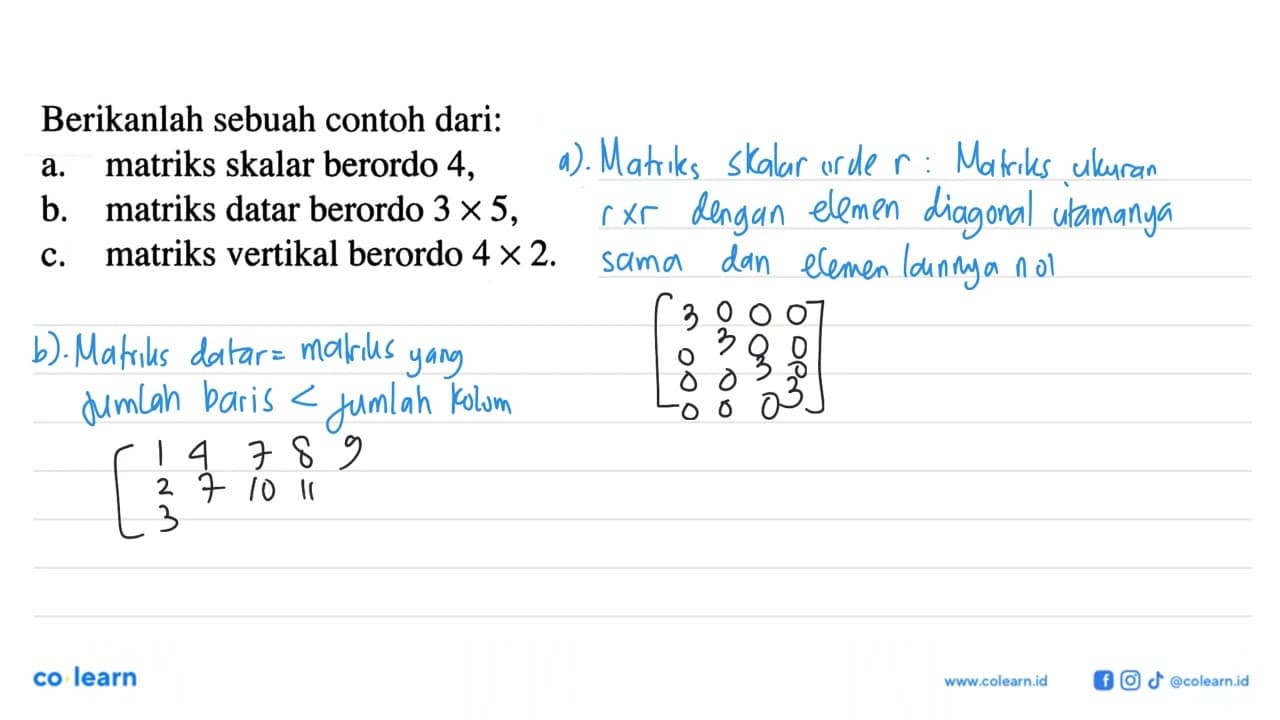 Berikanlah sebuah contoh dari:
a. matriks skalar berordo 4,
b. matriks datar berordo 3 × 5,
c. matriks vertikal berordo 4 × 2.
a). Matriks skalar orde r : Matriks ukuran
r×r dengan elemen diagonal utamanya
sama dan elemen lainnya nol
3 0 0 0
0 3 0 0
0 0 3 0
0 0 0 3
b). Matriks datar = matriks yang
jumlah baris < jumlah kolom
1 4 7 8 9
2 7 10 11
3
co learn
www.colearn.id
@colearn.id